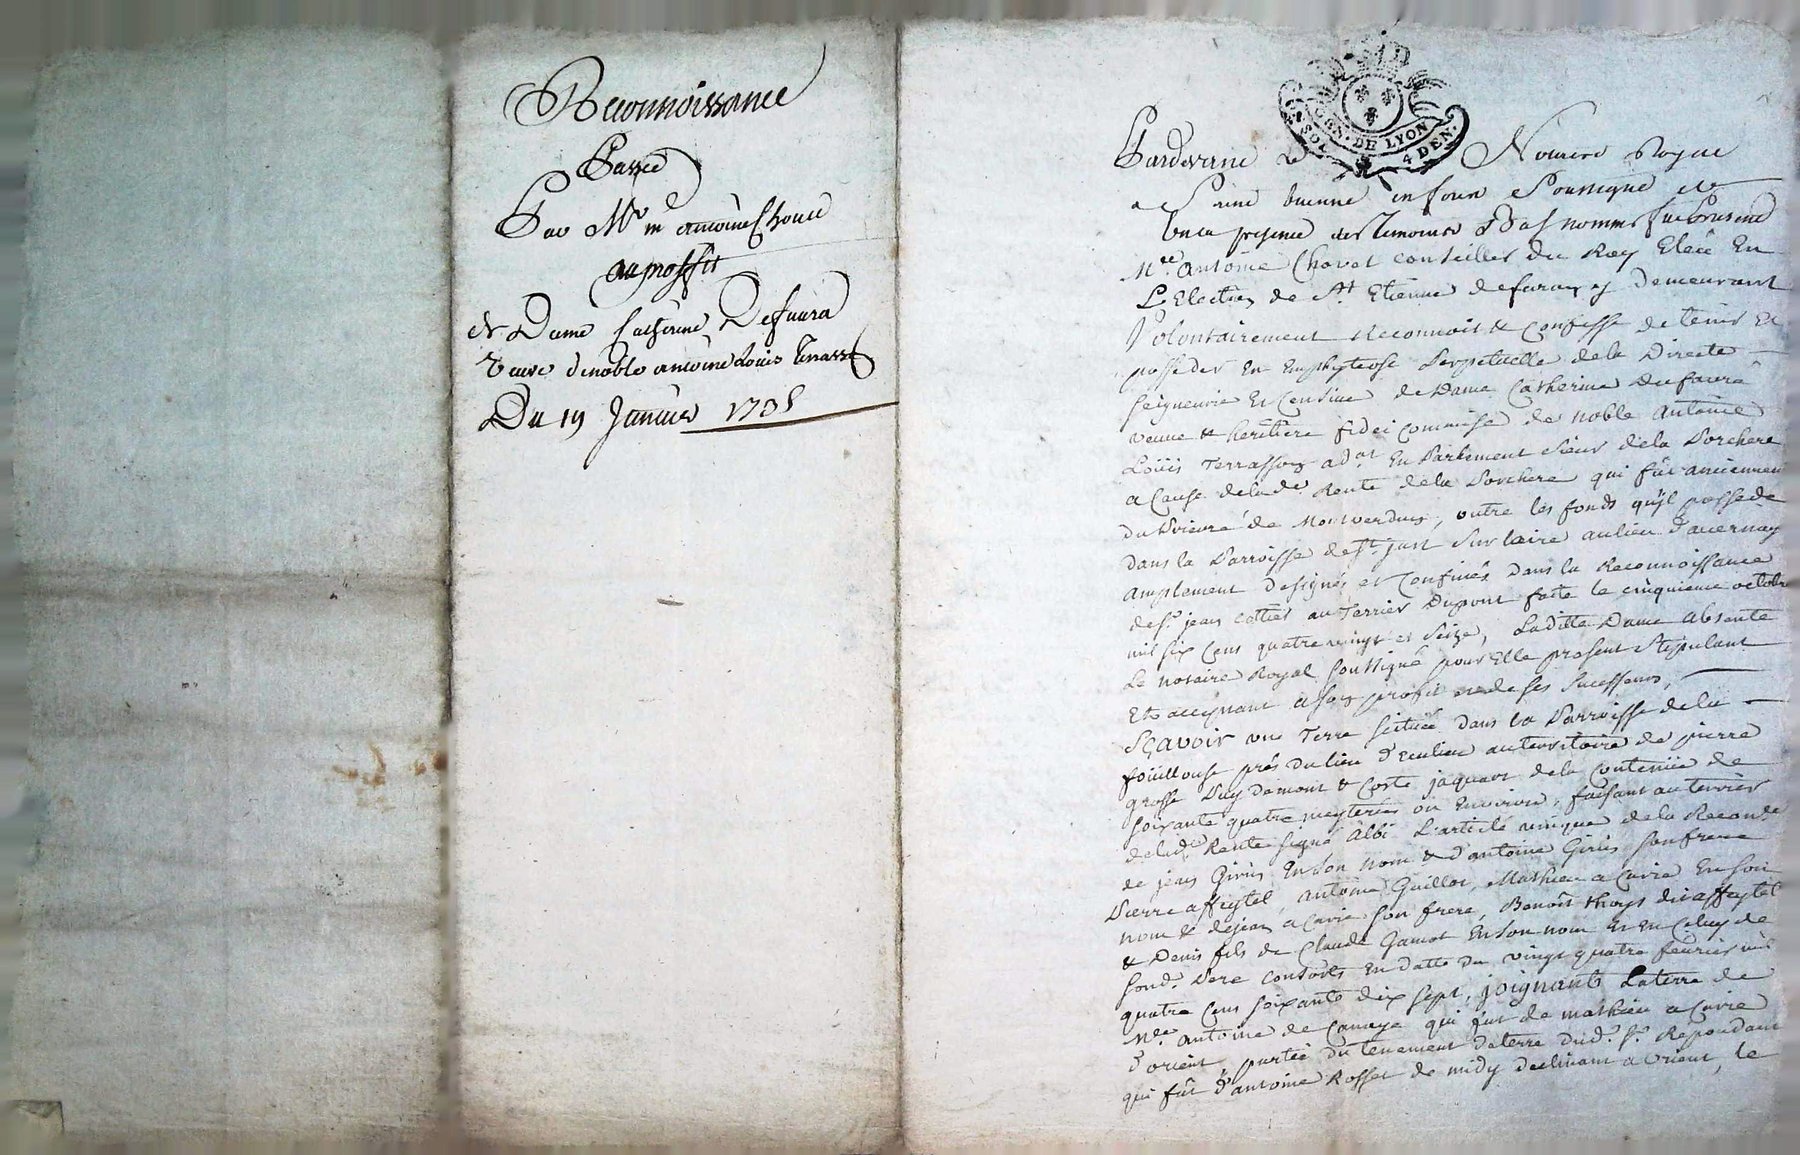 Reconnoissance
Passée
Par Mre antoine Chovet
au proffit
de Dame Catherine Dufaura
veuve de noble antoine Louis Terrasson
Du 19 Janvier 1735
GEN. DE LYON
SOL 4 DEN.
Pardevant le Notaire Royal
a St Etienne en forest soussigné et
en la presence des temoins bas nommés fut present
Mre. Antoine Chovet Conseiller du Roy Eleu En
L'Election de St Etienne de furan y Demeurant
Volontairement Reconnoit & Confesse de tenir Et
posseder En Emphyteose Perpetuelle de la Directe
Seigneurie Et Censive de Dame Catherine Dufaura
veuve & heritiere fidei commise de noble Antoine
Loüis Terrasson ad.at En Parlement Sieur de la Porchere
a Cause de la de. Rente de la Porchere qui fût anciennem
du Prieuré de Montverdun, outre les fonds qu'il possede
dans la Parroisse de St. just Sur Loire au lieu d'avernay
amplement designés et Confinés dans la Reconnoissance
de Sr. jean cottier au Terrier Dupont faite le cinquieme octobre
mil six Cens quatre vingt et Seize, Laditte Dame absente
Le notaire Royal soussigné pour Elle present Stipulant
Et acceptant a son profit et de ses Successeurs,
Sçavoir une Terre scituée dans la Parroisse de la
foüillouse prés du lieu d' au territoire de pierre
grosse Puy Damont & Coste jaquart de la Contenüe de
soixante quatre meyterées ou Environ, faisant au terrier
de lad. Rente signé Albi L'article unique de la Recon.ce
de jean Girin En son nom & d'antoine Girin son frere
Pierre affeytel, Antoine Guillot, Mathieu a Cavie En son
nom & de jean a Cavie son frere, Benoît thoys dit affeytel
& Denis fils de Claude Gamot En son nom Et en Celuy de
sond. Pere Consorts En datte du vingt quatre feuvrier mil
quatre Cens soixante dix sept, joignant La terre de
Mre. Antoine de Canaye qui fut de mathieu a Cavie
d'orient, partie du tenement de terre dud. Sr. Repondant
qui fût d'antoine Rosset de midy declinant a Orient, le